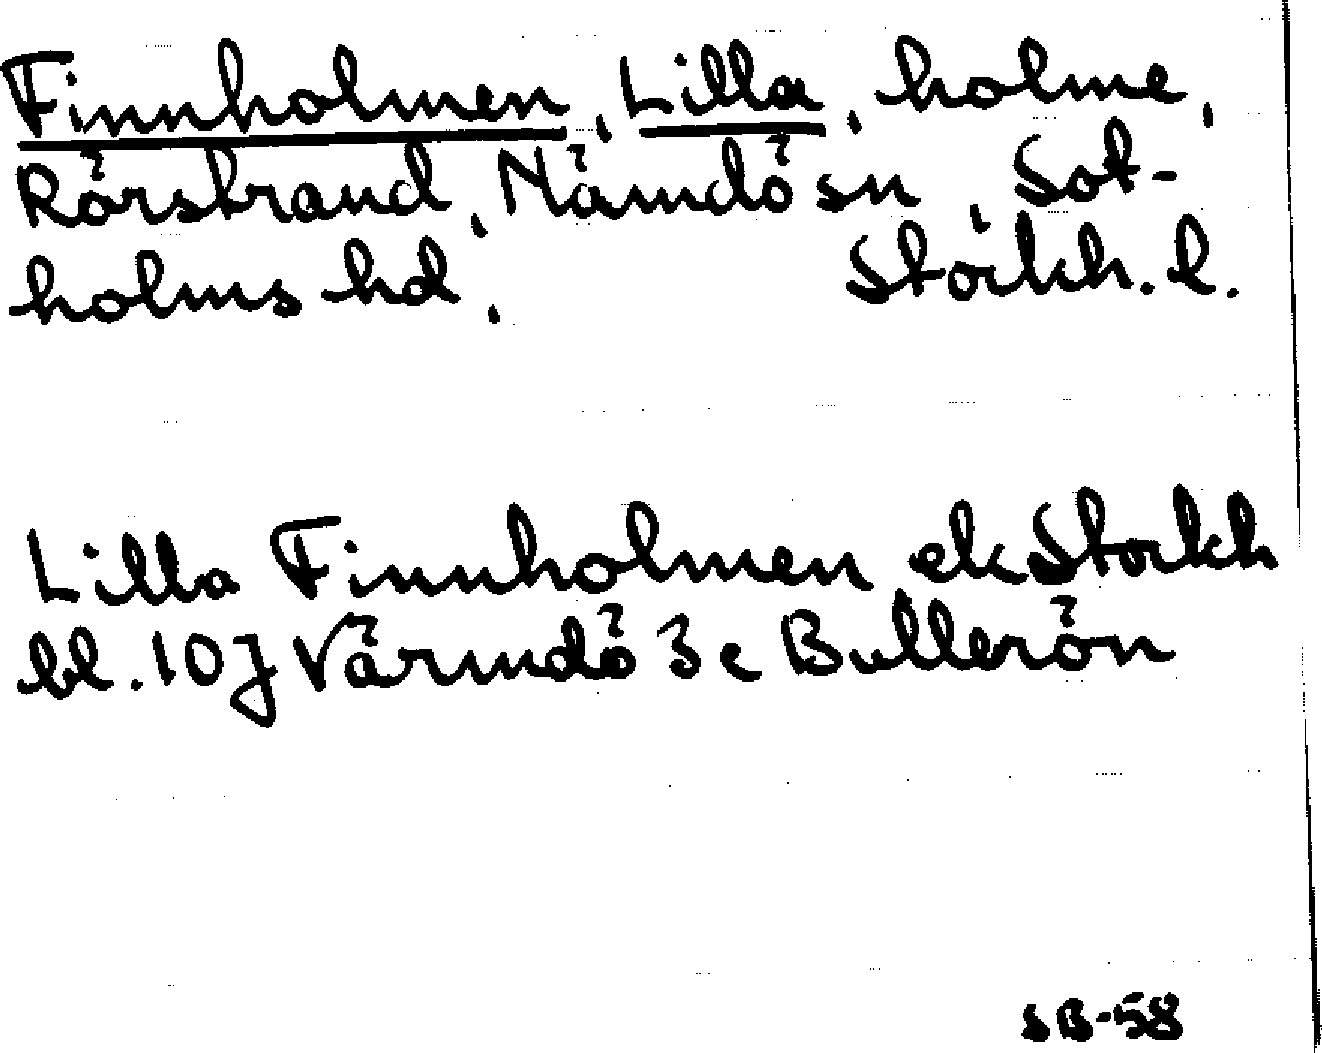 Finnholmen, Lilla, holme,
Rörstrand, Nämdö sn, Sot-
holms hd, Stockh. l.
Lilla Finnholmen ek Stockh
bl. 10J Värmdö 3c Bullerön
SB-58